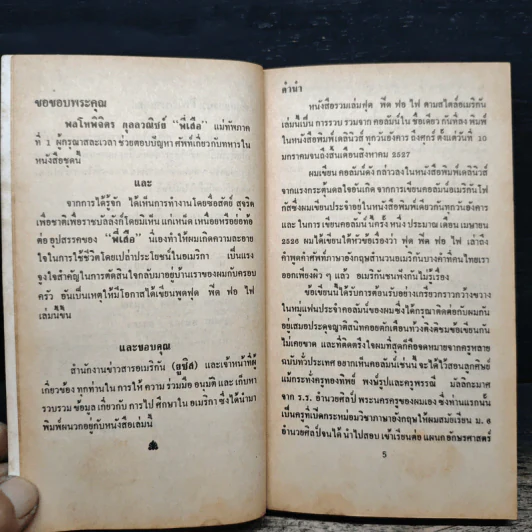 ขอขอบพระคุณ
พลโทพิจิตร กุลละวณิชย์ "พี่เสือ" แม่ทัพภาค
ที่ 1 ผู้กรุณาสละเวลา ช่วยตอบปัญหา ศัพท์เกี่ยวกับทหารใน
หนังสือชุดนี้
และ
จากการได้รู้จัก ได้เห็นการทำงานโดยซื่อสัตย์ สุจริต
เพื่อชาติเพื่อราชบัลลังก์โดยมิเห็น แก่เหนื่อยหรือย่อท้อ
ต่ออุปสรรคของ "พี่เสือ" นี่เองทำให้ผมเกิดความละอาย
ใจในการใช้ชีวิตโดยเปล่าประโยชน์ในอเมริกา เป็นแรง
จูงใจสำคัญในการตัดสินใจกลับมาอยู่บ้านเราของผมกับครอบ
ครัว อันเป็นเหตุให้มีโอกาสได้เขียนพูดฟุด ฟิด ฟอ ไฟ
เล่มนี้ขึ้น
และขอบคุณ
สำนักงานข่าวสารอเมริกัน (ยูซิส) และเจ้าหน้าที่ผู้
เกี่ยวข้อง ทุกท่านใน การให้ ความ ร่วมมือ อนุมัติ และ เก็บหา
รวบรวม ข้อมูล เกี่ยวกับ การไป ศึกษาใน อเมริกา ซึ่งได้นำมา
พิมพ์ผนวกอยู่กับหนังสือเล่มนี้
คำนำ
หนังสือรวมเล่มฟุด ฟิด ฟอ ไฟ ตามสไตล์อเมริกัน
เล่มนี้เป็น การรวบ รวมจาก คอลัมน์ใน ชื่อเดียว กันที่ลง พิมพ์
ในหนังสือพิมพ์เดลินิวส์ ทุกวันอังคาร ถึงศุกร์ ตั้งแต่วันที่ 10
มกราคมจนถึงสิ้นเดือนสิงหาคม 2527
ผมเขียน คอลัมน์ดัง กล่าวลงในหนังสือพิมพ์เดลินิวส์
จากแรงกระตุ้นดลใจอันเกิด จากการเขียนคอลัมน์อเมริกันโฟ
กัสซึ่งผมเขียนประจำอยู่ในหนังสือพิมพ์เดียวกันทุกวันอังคาร
และ ใน การเขียน คอลัมน์ นี้ครั้ง หนึ่ง ประมาณ เดือน เมษายน
2526 ผมได้เขียนใต้หัวข้อเรื่องว่า ฟุด ฟิด ฟอ ไฟ เล่าถึง
คำพูดคำศัพท์ภาษาอังกฤษสำนวนอเมริกันบางคำที่คนไทยเรา
ออกเพียงผิว ๆ แล้ว อเมริกันชนฟังกันไม่รู้เรื่อง
ข้อเขียนนี้ได้รับการต้อนรับอย่างเกรียวกราวกว้างขวาง
ในหมู่แฟนประจำคอลัมน์ของผมซึ่งได้กรุณาติดต่อกับผมกัน
อยู่เสมอประดุจญาติสนิทคอยตักเตือนท้วงติงติชมข้อเขียนกัน
ไม่เคยขาด และที่ติดตรึงใจผมที่สุดก็คือจดหมายจากครูหลาย
ฉบับทั่วประเทศ อยากเห็นคอลัมน์เช่นนี้ จะได้ไว้สอนลูกศิษย์
แม้กระทั่งครูทองทิพย์ พงษ์รูปและครูพรรณี มลิลกะมาศ
จาก ร.ร. อำนวยศิลป์ พระนครครูของผมเอง ซึ่งท่านแรกนั้น
เป็นครูที่เปิดกระหม่อมวิชาภาษาอังกฤษให้ผมสมัยเรียน ม. 6
อำนวยศิลป์จนได้ นำไปสอบ เข้าเรียนต่อ แผนกอักษรศาสตร์
5